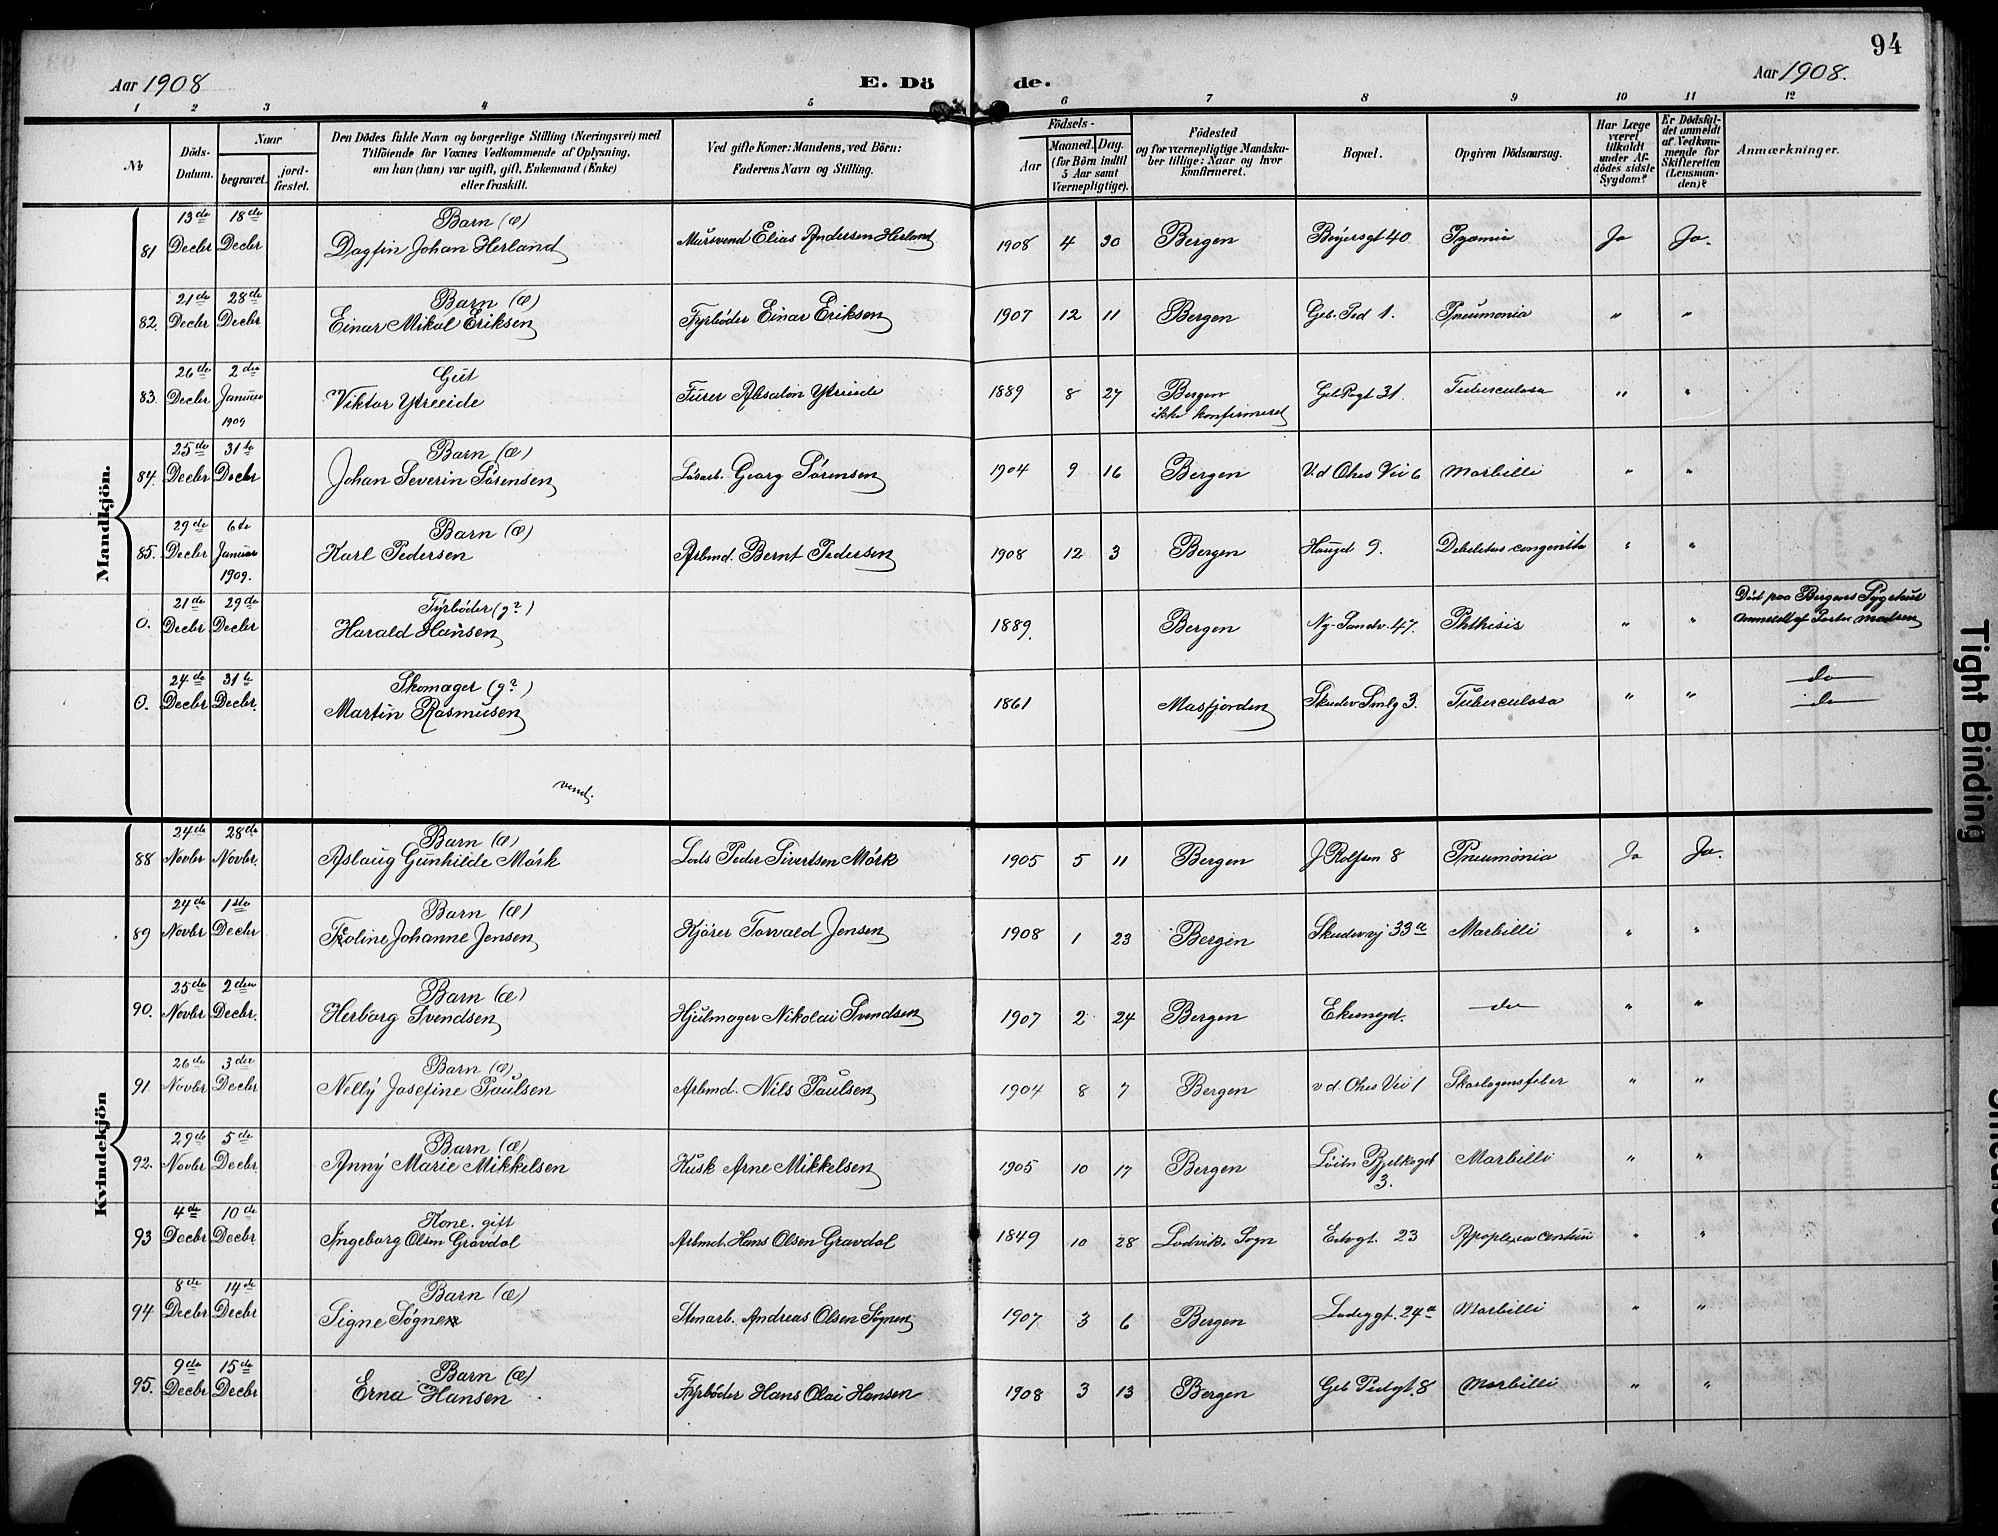 94
Aar 1908
E. Dö
de.
Aar 1908.
1 2 3 4 5 6 7 8 9 10 11 12
No
Döds-Datum.
Naar
begravet.
jord-fæstet.
Den Dödes fulde Navn og borgerlige Stilling (Næringsvei) med
Tilföiende for Voxnes Vedkommende af Oplysning,
om han (hun) var ugift, gift, Enkemand (Enke)
eller fraskilt.
Ved gifte Koner: Mandens, ved Börn:
Faderens Navn og Stilling.
Födsels-
Aar
Maaned. Dag.
(for Börn indtil
5 Aar samt
Værnepligtige).
Födested
og for værnepligtige Mandska-
ber tillige: Naar og hvor
konfirmeret.
Bopæl.
Opgiven Dödsaarsag.
Har Læge
været
tilkaldt
under Af-
dödes sidste
Sygdom?
Er Dödsfal-
det anmeldt
af Vedkom-
mende for
Skifteretten
(Lensman-
den)?
Anmærkninger.
Mandkjön.
81 13de Decbr 18de Decbr Barn (æ)
Dagfin Johan Herland Mursvend Elias Andersen Herland 1908 4 30 Bergen Beyersgt 40 Pyæmia Ja Ja.
82. 21de Decbr 28de Decbr Barn (æ)
Einar Mikal Eriksen Fyrbøder Einar Eriksen 1907 12 11 Bergen Geb. Ped 1. Pneumonia " "
83. 26de Decbr 2den Januar 1909 Gut
Viktor Ytreeide Furer Absalon Ytreeide 1889 8 27 Bergen
ikke konfirmered 31 Tuberculosa " "
84. 25de Decbr 31te Decbr Barn (æ)
Johan Severin Sørensen Løsarb. Georg Sørensen 1904 9 16 Bergen V. d Ohes Vei 6 Morbilli " "
85. 29de Decbr 6te Januar 1909. Barn (æ)
Karl Pedersen Arbmd. Bernt Pedersen 1908 12 3 Bergen Hougd 9. Debilitas congenita " "
0. 21de Decbr 29de Decbr Fyrbøder (g?)
Harald Hansen 1889. Bergen Ny-Sandv. 47. Phthisis " " Død paa Bergens Sygehus
anmeldt af Pastor Madsen
0. 24de Decbr 31te Decbr. Skomager (g?)
Martin Rasmusen 1861 Masfjorden Skudev Smlg 3. Tuberculosa " " do
do
vend.
Kvindekjön
88 24de Novbr 28de Novbr. Barn (æ)
Aslaug Gunhilde Mørk Lods Peder Sivertsen Mørk 1905 5 11 Bergen J Rolfsen 8 Pneumonia Ja Ja.
89 24de Novbr 1ste Decbr Barn (æ)
Johanne Jensen Kjører Torvald Jensen 1908 1 23 Bergen Skudevvj 33a Morbilli " "
90. 25de Novbr 2den Decbr. Barn (æ)
Herborg Svendsen Hjulmager Nikolai Svendsen 1907 2 24 Bergen do " "
91. 26de Novbr 3die Decbr Barn (æ)
Nelly Josefine Paulsen Arbmd. Nils Paulsen 1904 8 7 Bergen v d. Ohes Vei 1 Skarlagensfeber " "
92. 29de Novbr 5de Decbr Barn (æ)
Anny Marie Mikkelsen Kusk Arne Mikkelsen 1905 10 17 Bergen 3. Morbilli " "
93 4de Decbr 10de Decbr. Kone. gift
Ingeborg Olsen Gravdal Arbmd. Hans Olsen Gravdal 1849 10 28 Ladvik. Sogn 23 " "
94 8de Decbr 14de Decbr Barn (æ)
Signe Søgnen Stenarb. Andreas Olsen Søgnen 1907 3 6 Bergen Ladeggt. 24a Morbilli " "
95. 9de Decbr 15de Decbr Barn (æ)
Erna Hansen Fyrbøder Hans Olai Hansen 1908 3 13 Bergen Geb Pedgt. 8 Morbilli " "
Tight Binding